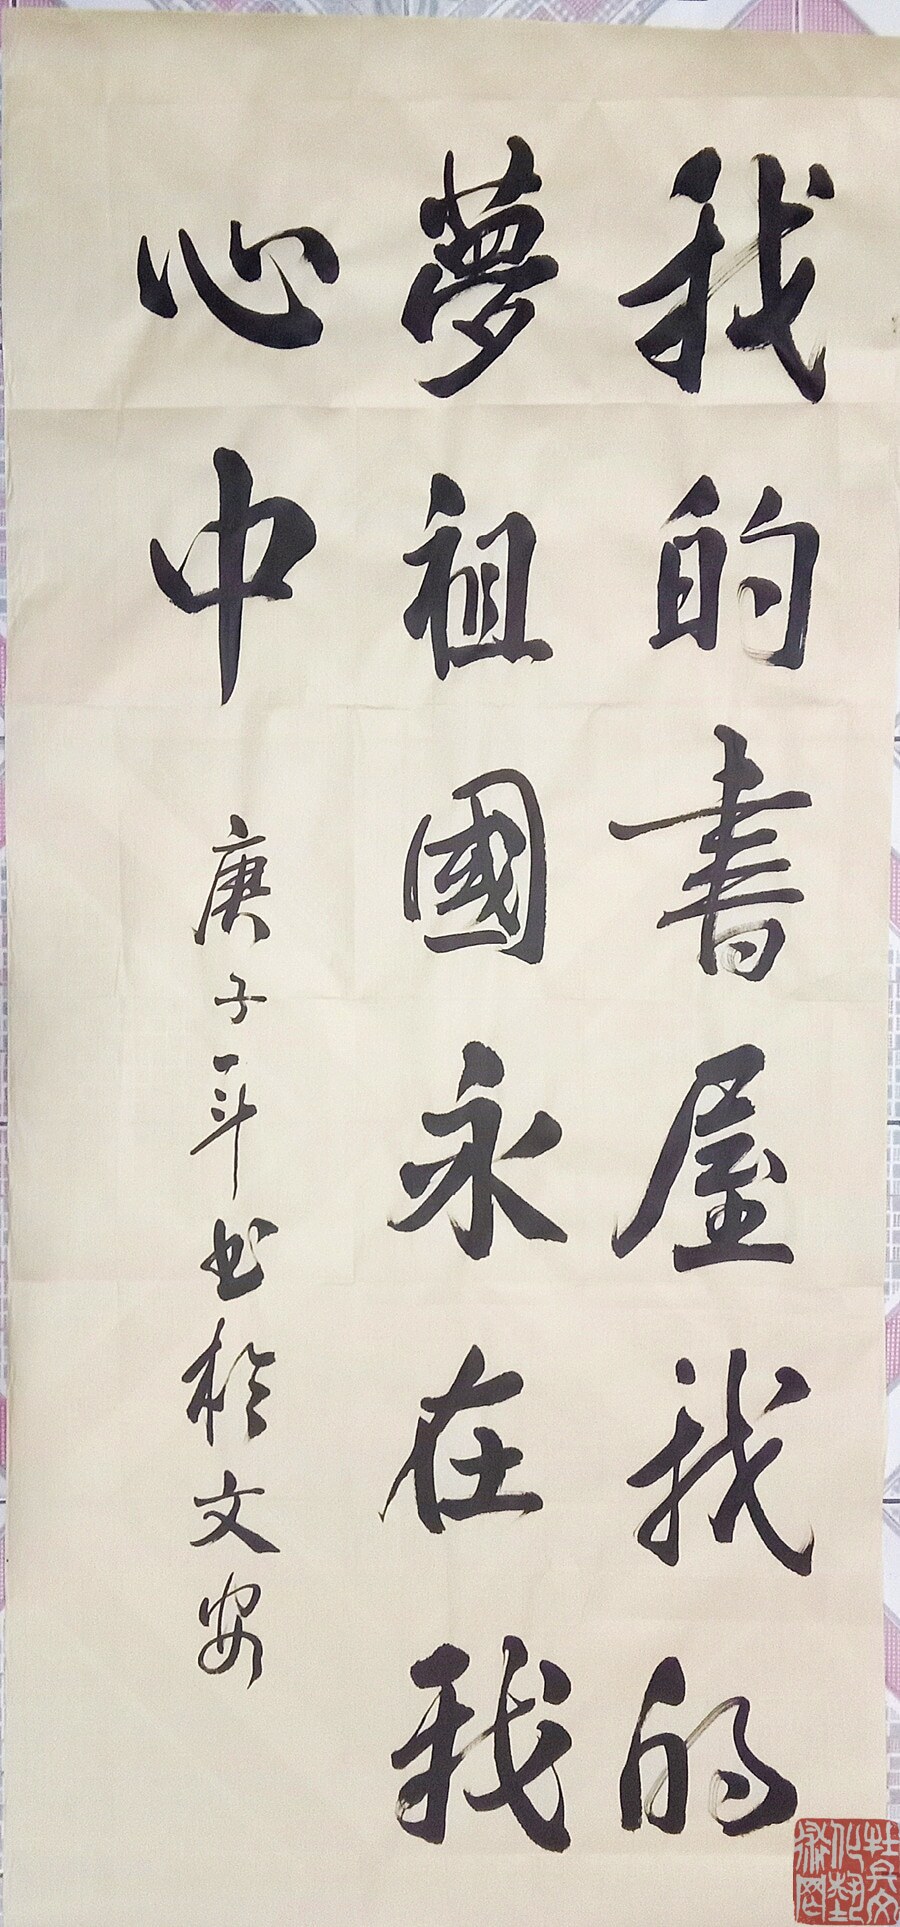 我的書屋我的
夢祖國永在我
心中
庚子年书於文安